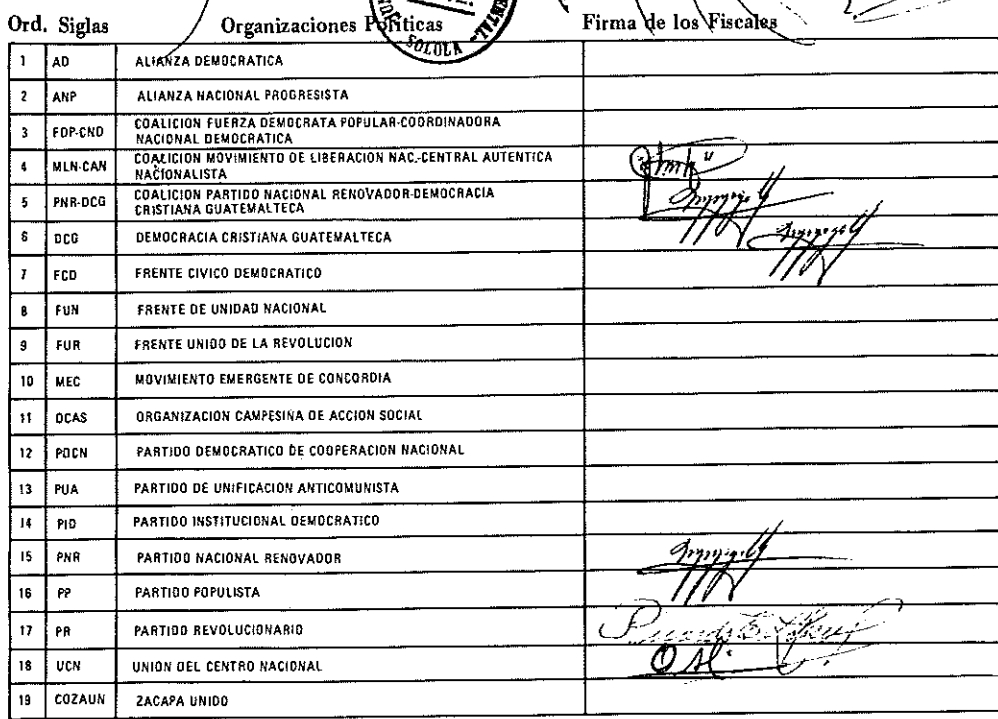 Ord. Siglas Organizaciones Políticas Firma de los Fiscales
SOLOLA
1 AD ALIANZA DEMOCRATICA
2 ANP ALIANZA NACIONAL PROGRESISTA
3 FDP-CND COALICION FUERZA DEMOCRATA POPULAR-COORDINADORA
NACIONAL DEMOCRATICA
4 MLN-CAN COALICION MOVIMIENTO DE LIBERACION NAC.-CENTRAL AUTENTICA
NACIONALISTA
5 PNR-DCG COALICION PARTIDO NACIONAL RENOVADOR-DEMOCRACIA
CRISTIANA GUATEMALTECA
6 DCG DEMOCRACIA CRISTIANA GUATEMALTECA
7 FCD FRENTE CIVICO DEMOCRATICO
8 FUN FRENTE DE UNIDAD NACIONAL
9 FUR FRENTE UNIDO DE LA REVOLUCION
10 MEC MOVIMIENTO EMERGENTE DE CONCORDIA
11 OCAS ORGANIZACION CAMPESINA DE ACCION SOCIAL
12 PDCN PARTIDO DEMOCRATICO DE COOPERACION NACIONAL
13 PUA PARTIDO DE UNIFICACION ANTICOMUNISTA
14 PID PARTIDO INSTITUCIONAL DEMOCRATICO
15 PNR PARTIDO NACIONAL RENOVADOR
16 PP PARTIDO POPULISTA
17 PR PARTIDO REVOLUCIONARIO
18 UCN UNION DEL CENTRO NACIONAL
19 COZAUN ZACAPA UNIDO